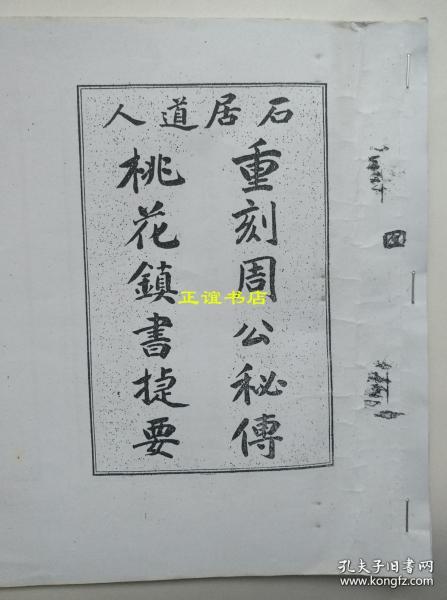 石居道人
重刻周公秘傳
桃花鎮書捷要
正谊书店
四
孔夫子旧书网
www.kongfz.com